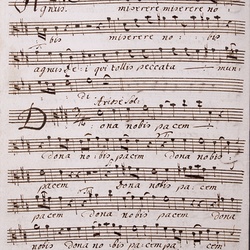 Agnus. miserere miserere no
bis miserere no: bis
agnus De: i qui tollis peccata mun:
di
Dona nobis pacem
dona no: bis pacem dona nobis
pacem dona nobis pacem.
pacem dona nobis pacem
nobis Dona nobis pacem pacem